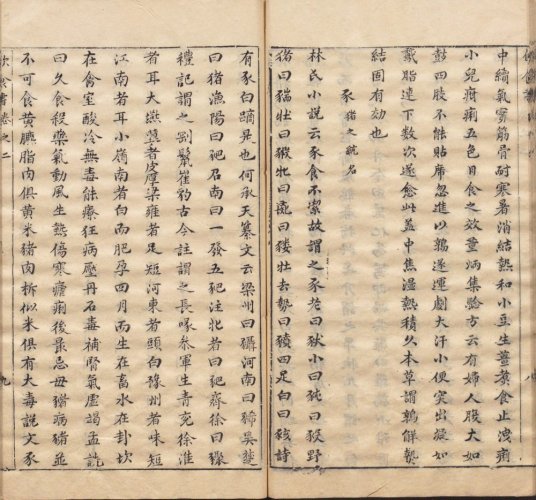 中續氣實筋骨耐寒暑消結熱和小豆生薑煮食止洩痢
小兒疳痢五色旦食之效董炳集驗方云有婦人腹大如
鼓四肢不能貼席忽進以鶉遂運劇大汗小便突出凝如
鵝脂連下數次遂愈此蓋中焦濕熱積久本草謂鶉解熱
結固有効也
豕 豬之總名
林氏小說云豕食不潔故謂之豕老曰豥小曰豘豵野
猪曰豲牡曰豭牝曰豝曰豵牡去勢曰豶四足白曰豥詩
有豕白蹢是也何承天纂文云梁州曰䝏河南曰豨吳楚
曰猪漁陽曰豝召南曰一發五豝注牝者曰豝齊徐曰䝏
禮記謂之剛鬣崔豹古今註謂之長喙參軍生青兗徐淮
者耳大燕冀者皮厚梁雍者足短河東者頭白豫州者味短
江南者耳小嶺南者白而肥孕四月而生在畜水在卦坎
在禽室酸冷無毒能療狂病壓丹石毒補腎氣虛竭孟詵
曰久食殺藥氣動風生熱傷寒瘧痢後最忌毋豬病豬並
不可食黃臕脂肉俱黃米豬肉柝似米俱有大毒說文豕
卷之二
九